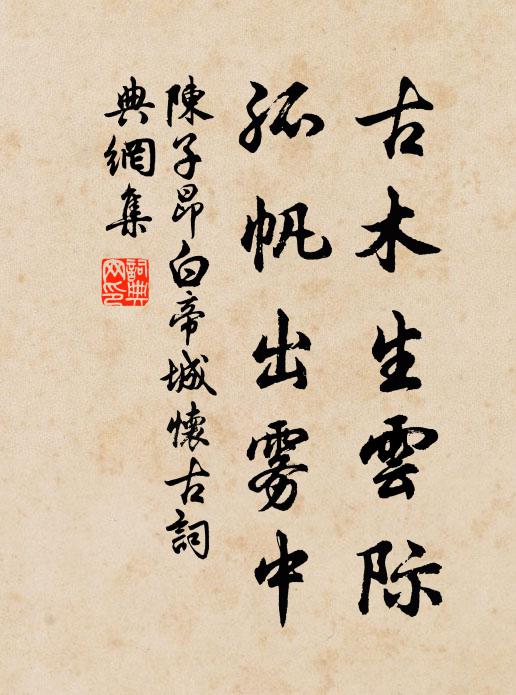 古木生雲际
孤帆出雾中
陳子昂白帝城懷古詞
典網集
詞典網印